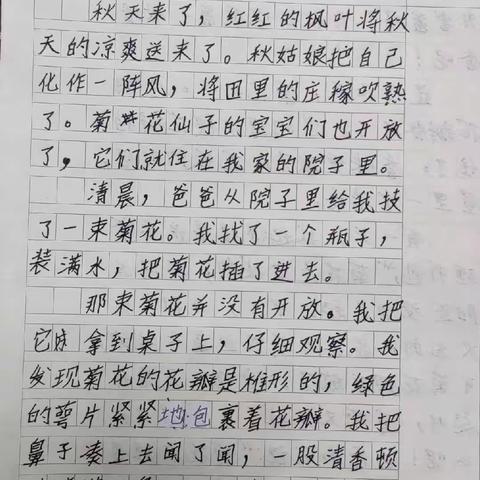 秋天来了，红红的枫叶将秋
天的凉爽送来了。秋姑娘把自己
化作一阵风，将田里的庄稼吹熟
了。菊花仙子的宝宝们也开放
了，它们就住在我家的院子里。
清晨，爸爸从院子里给我技
了一束菊花。我找了一个瓶子，
装满水，把菊花插了进去。
那束菊花并没有开放。我把
它拿到桌子上，仔细观察。我
发现菊花的花瓣是椎形的，绿色
的萼片紧紧地包裹着花瓣。我把
鼻子凑上去闻了闻，一股清香顿